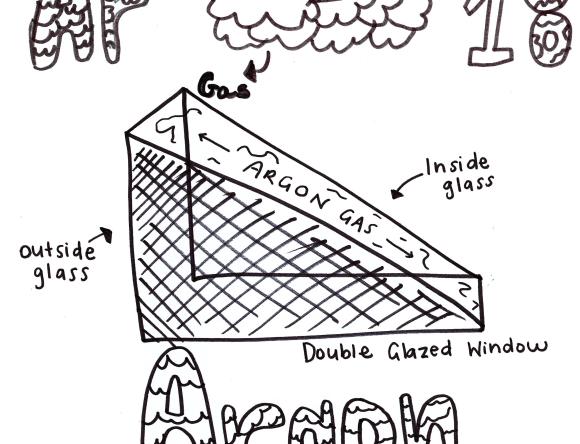 Ar 18
Gas
ARGON GAS
Inside
glass
outside
glass
Double Glazed Window
Argon